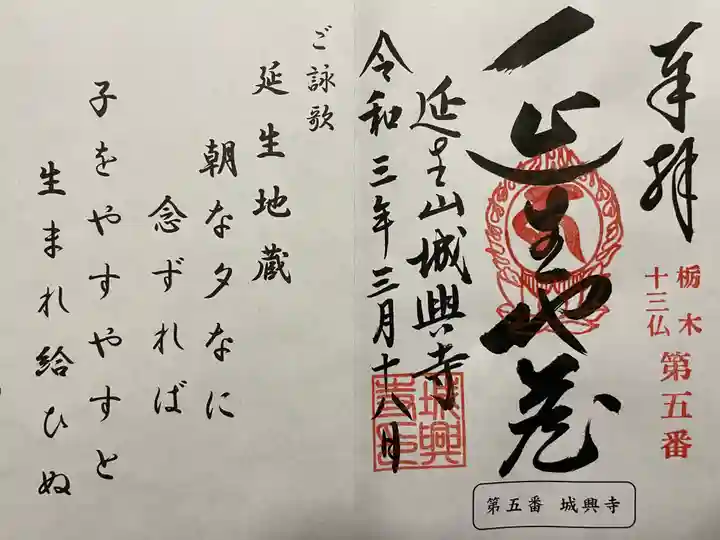 奉拝
栃木
十三仏
第五番
延生地蔵
第五番 城興寺
延生山城興寺
令和三年三月十八日
ご詠歌
延生地蔵
朝な夕なに
念ずれば
子をやすやすと
生まれ給ひぬ